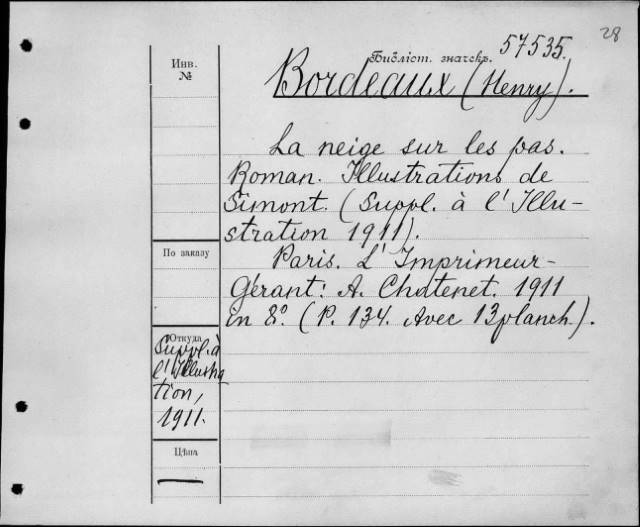 28
Библіот. значекъ. 57535.
Инв.
№
Bordeaux (Henry).
La neige sur les pas.
Roman. Illustrations de
Simont. (Suppl. à l'Illu-
stration 1911).
По заказу
Paris. L'Imprimeur-
Gérant: A. Chatenet. 1911
En 8º. (P. 134. Avec 13 planch.).
Откуда
Suppl. à
l'Illustra
tion,
1911.
Цѣна
—